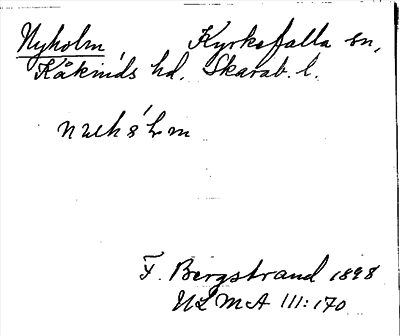 Nyholm, Kyrkefalla sn,
Kåkinds hd, Skarab. l.
F. Bergstrand 1898
ULMA 111:170